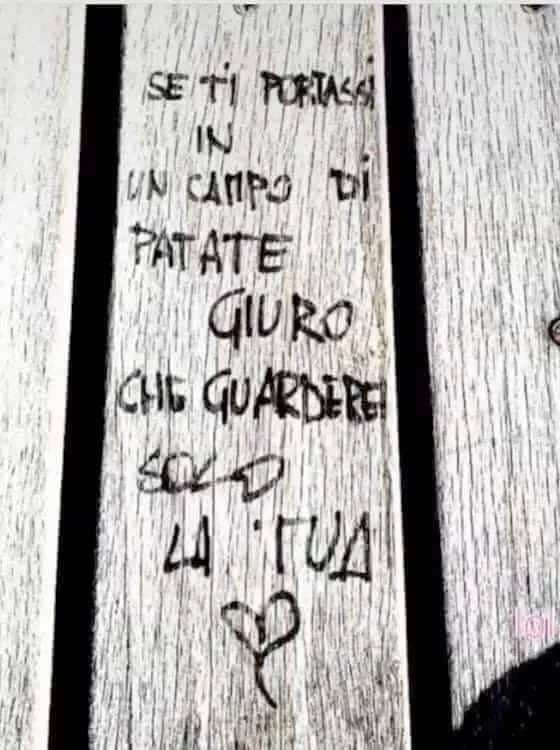 SE Ti PORTASSi
IN
UN CAMPO Di
PATATE
GIURO
CHE GUARDEREI
SOLO
LA TUA